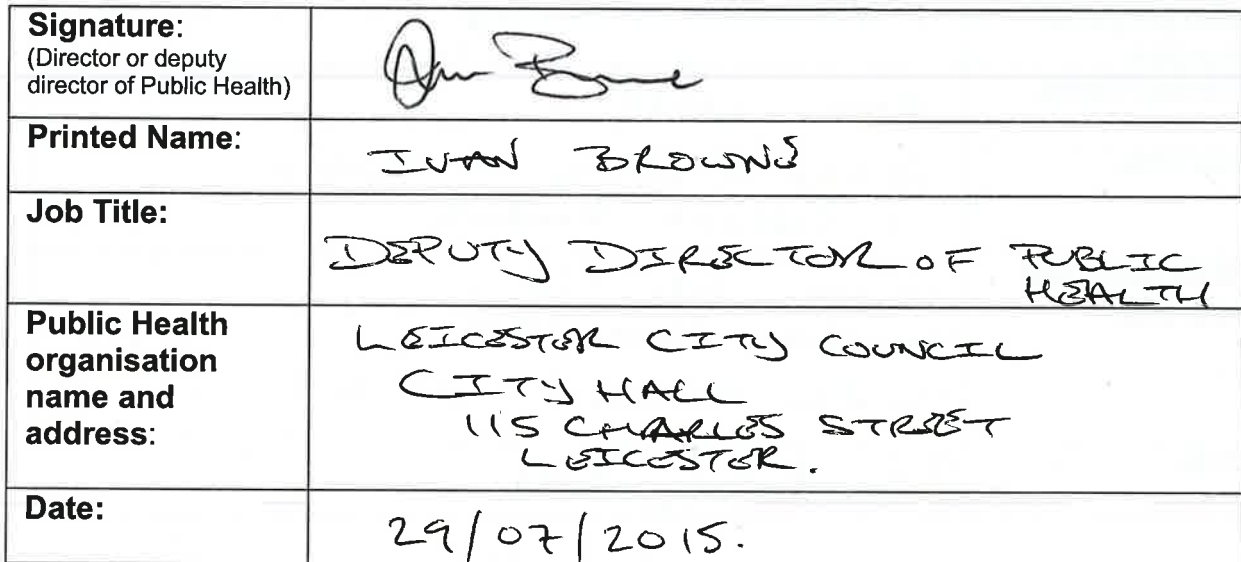 Signature:
(Director or deputy
director of Public Health)
Printed Name:
IVAN BROWNE
Job Title:
DEPUTY DIRECTOR OF PUBLIC
HEALTH
Public Health
organisation
name and
address:
LEICESTER CITY COUNCIL
CITY HALL
115 CHARLES STREET
LEICESTER.
Date:
29/07/2015.